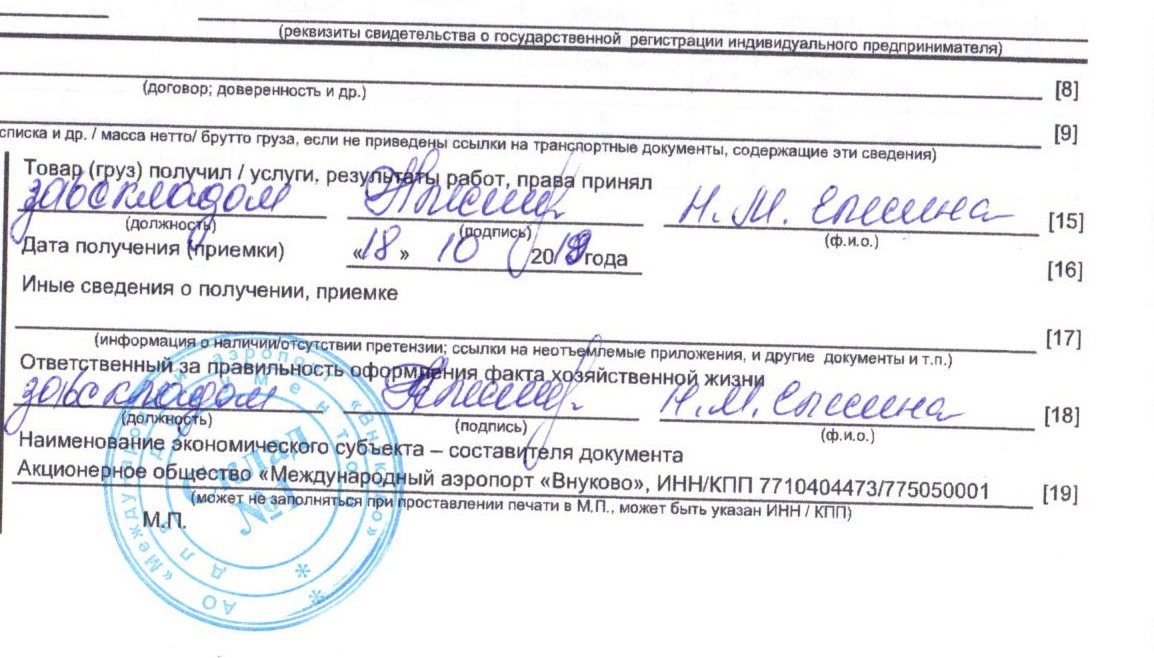 (реквизиты свидетельства о государственной регистрации индивидуального предпринимателя)
[8]
(договор; доверенность и др.)
[9]
списка и др. / масса нетто/ брутто груза, если не приведены ссылки на транспортные документы, содержащие эти сведения)
Товар (груз) получил / услуги, результаты работ, права принял
завскладом Н.М. [15]
(должность) (подпись) (ф.и.о.)
Дата получения (приемки) «18» 10 2019 года [16]
Иные сведения о получении, приемке
[17]
(информация о наличии/отсутствии претензии; ссылки на неотъемлемые приложения, и другие документы и т.п.)
Ответственный за правильность оформления факта хозяйственной жизни
завскладом Н.М. [18]
(должность) (подпись) (ф.и.о.)
Наименование экономического субъекта – составителя документа
Акционерное общество «Международный аэропорт «Внуково», ИНН/КПП 7710404473/775050001 [19]
(может не заполняться при проставлении печати в М.П., может быть указан ИНН / КПП)
М.П.
АО «Международный аэропорт «Внуково»
для документов
Склад
№1